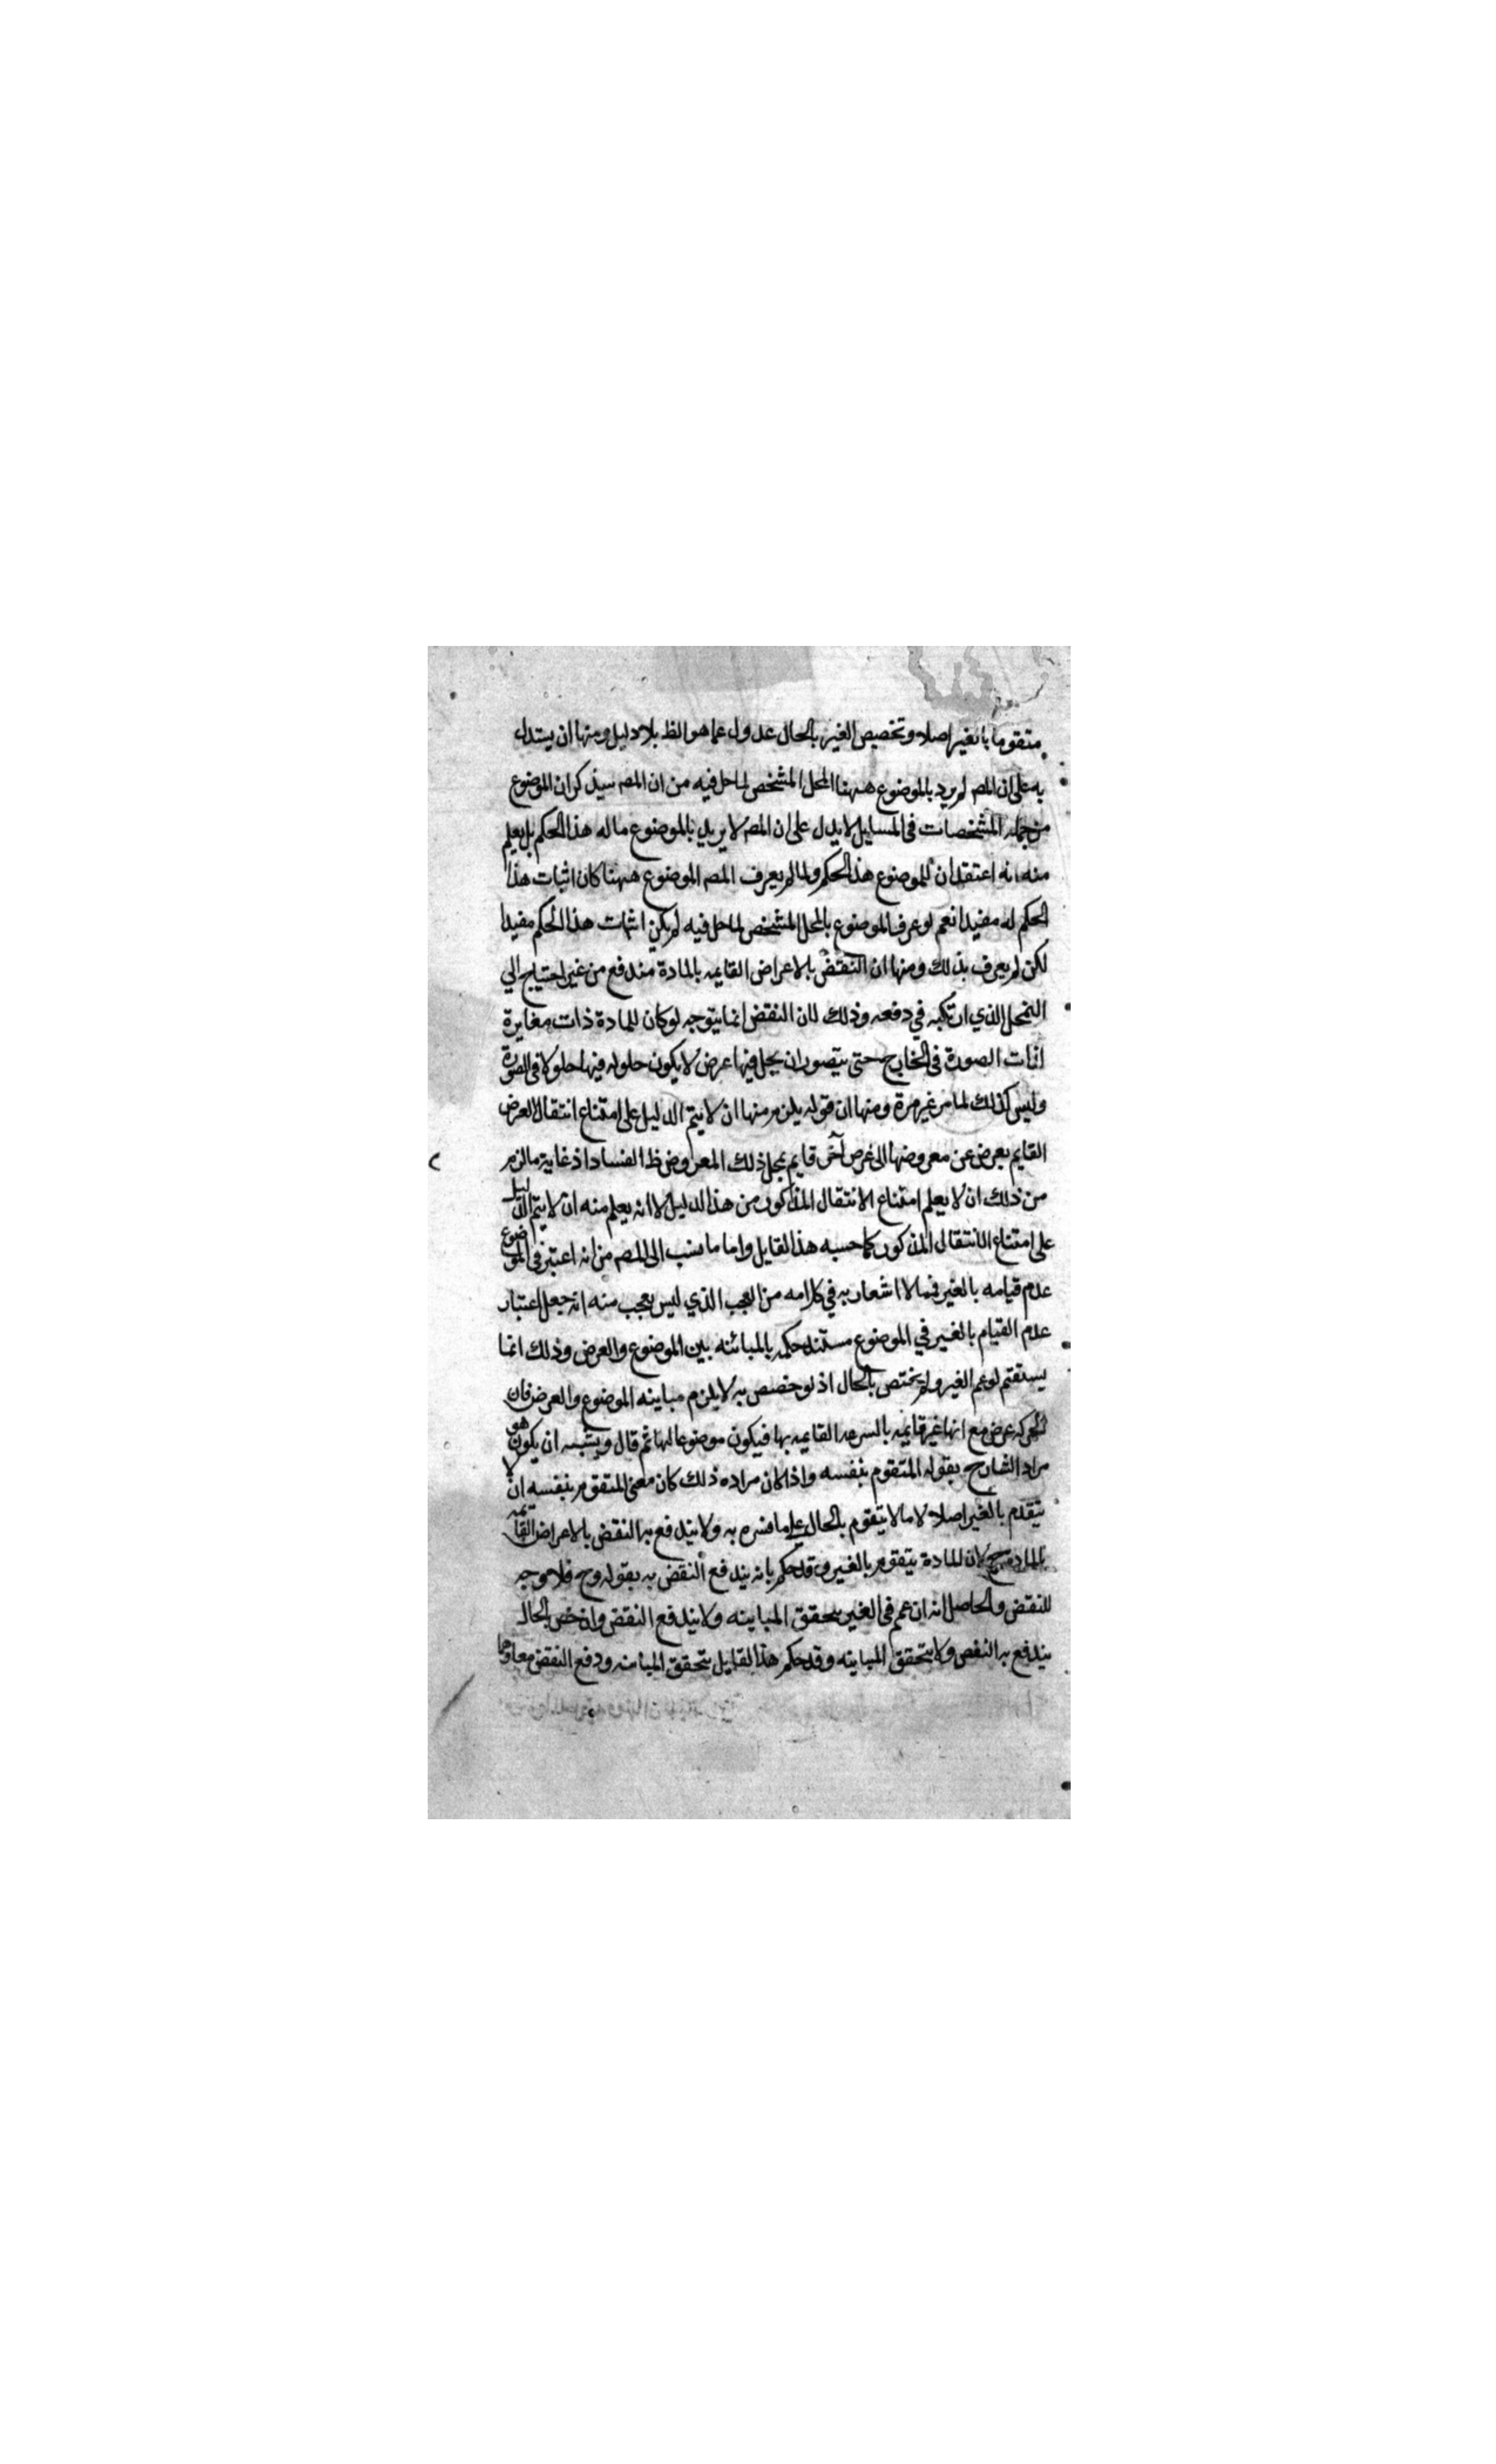 متقوما بالغير اصلا وتخصيص الغير بالحال عدول عما هو الظ بلا دليل ومنها ان يستدل
به على ان المصـ لم يرد بالموضوع ههنا المحل المشخص لما حل فيه من ان المصـ سيذكر ان الموضوع
من جملة المشخصات في المسايل لا يدل على ان المصـ لا يريد بالموضوع ما له هذا الحكم بل يعلم
منه انه اعتقد ان للموضوع هذا الحكم ولما لم يعرف المصـ الموضوع ههنا كان اثبات هذا
الحكم له مفيدا نعم لو عرف الموضوع بالمحل المشخص لما حل فيه لم يكن اثبات هذا الحكم مفيدا
لكن لم يعرف بذلك ومنها ان النقض بالاعراض القايمه بالمادة مندفع من غير احتياج الي
التمحل الذي ارتكبه في دفعه وذلك لان النقض انما يتوجه لو كان للمادة ذات مغايرة
لذات الصورة في الخارج حتى يتصور ان يحل فيها عرض لا يكون حلوله فيها حلولا في الصورة
وليس كذلك لما مر غير مرة ومنها ان قوله يلزم منها ان لا يتم الدليل على امتناع انتقال العرض
القايم بعرض عن معروضها الى عرض آخر قايم بمحل ذلك المعروض ظ الفساد اذ غاية ما لزم
من ذلك ان لا يعلم امتناع الانتقال المذكور من هذا الدليل لا انه يعلم منه ان لا يتم الدليل
على امتناع الانتقال المذكور كما حسبه هذا القايل واما ما نسب الى المصـ من انه اعتبر في الموضوع
عدم قيامه بالغير فمما لا اشعار به في كلامه من العجب الذي ليس بعجب منه انه جعل اعتبار
عدم القيام بالغير في الموضوع مستند حكمه بالمبائنه بين الموضوع والعرض وذلك انما
يستقيم لو عم الغير ولم يختص بالحال اذ لو خصص به لا يلزم مباينه الموضوع والعرض فان
الحركه عرض مع انها غير قايمه بالسرعه القايمه بها فيكون موضوعا لها ثم قال ويشبه ان يكون هو
مراد الشارح بقوله المتقوم بنفسه واذا كان مراده ذلك كان معنى المتقوم بنفسه ان لا
يتقدم بالغير اصلا لا ما لا يتقوم بالحال على ما فسره به ولا يندفع به النقض بالاعراض القايمه
بالمادة ح لان للمادة يتقوم بالغير وقد حكم بانه يندفع النقض به بقوله وح فلا وجه
للنقض والحاصل انه ان عم في الغير يتحقق المباينه ولا يندفع النقض وان خص بالحال
يندفع به النقض ولا يتحقق المباينه وقد حكم هذا القايل بتحقق المباينه ودفع النقض معا وهما